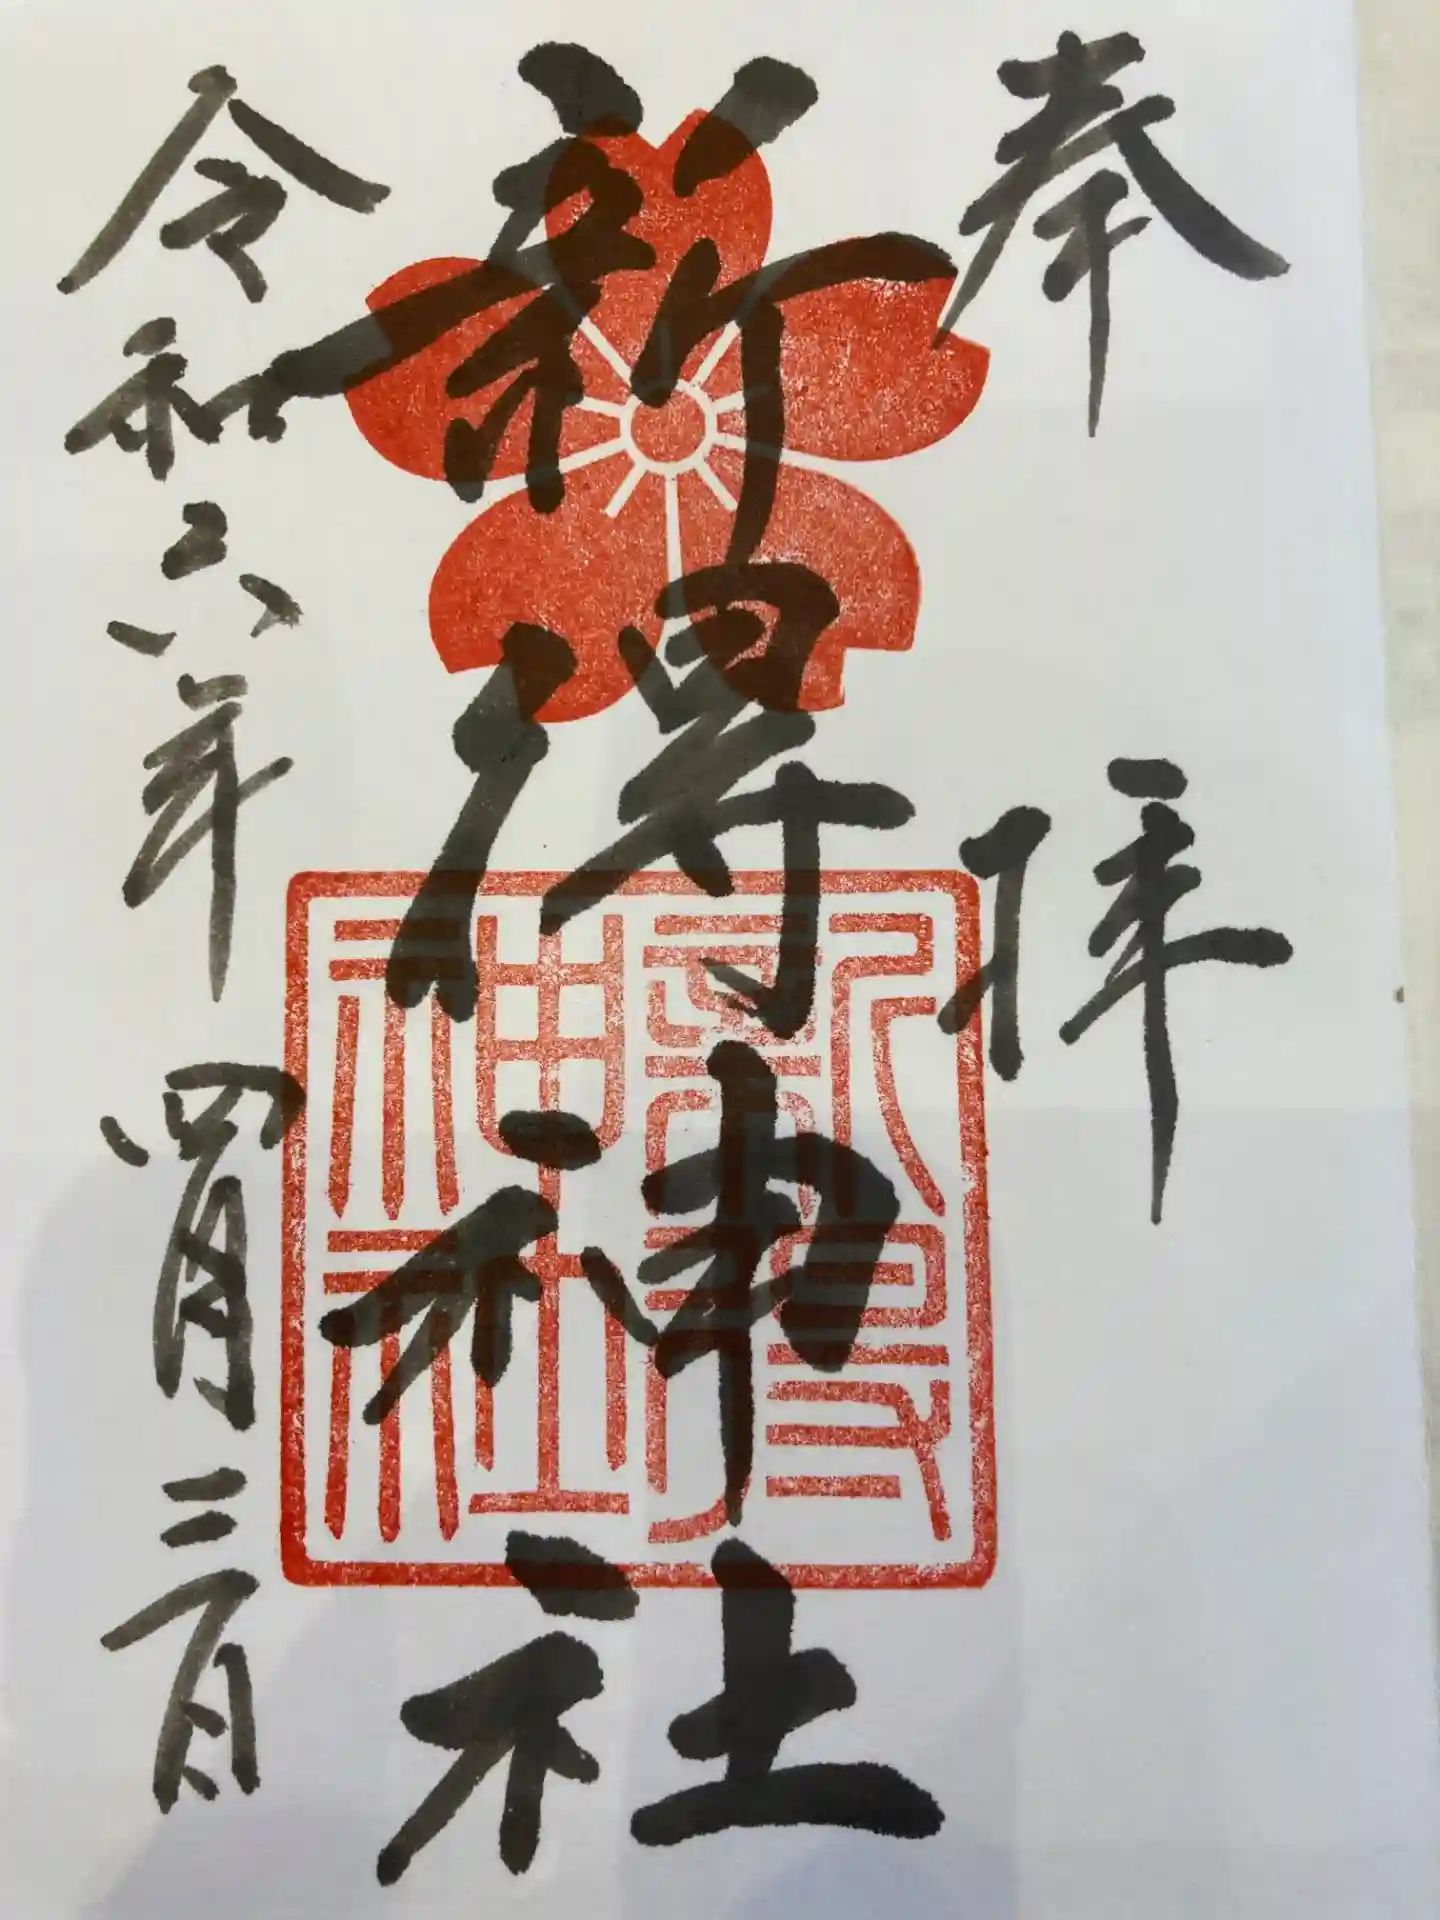 奉拝
新得神社
令和六年四月三日
新得
神社